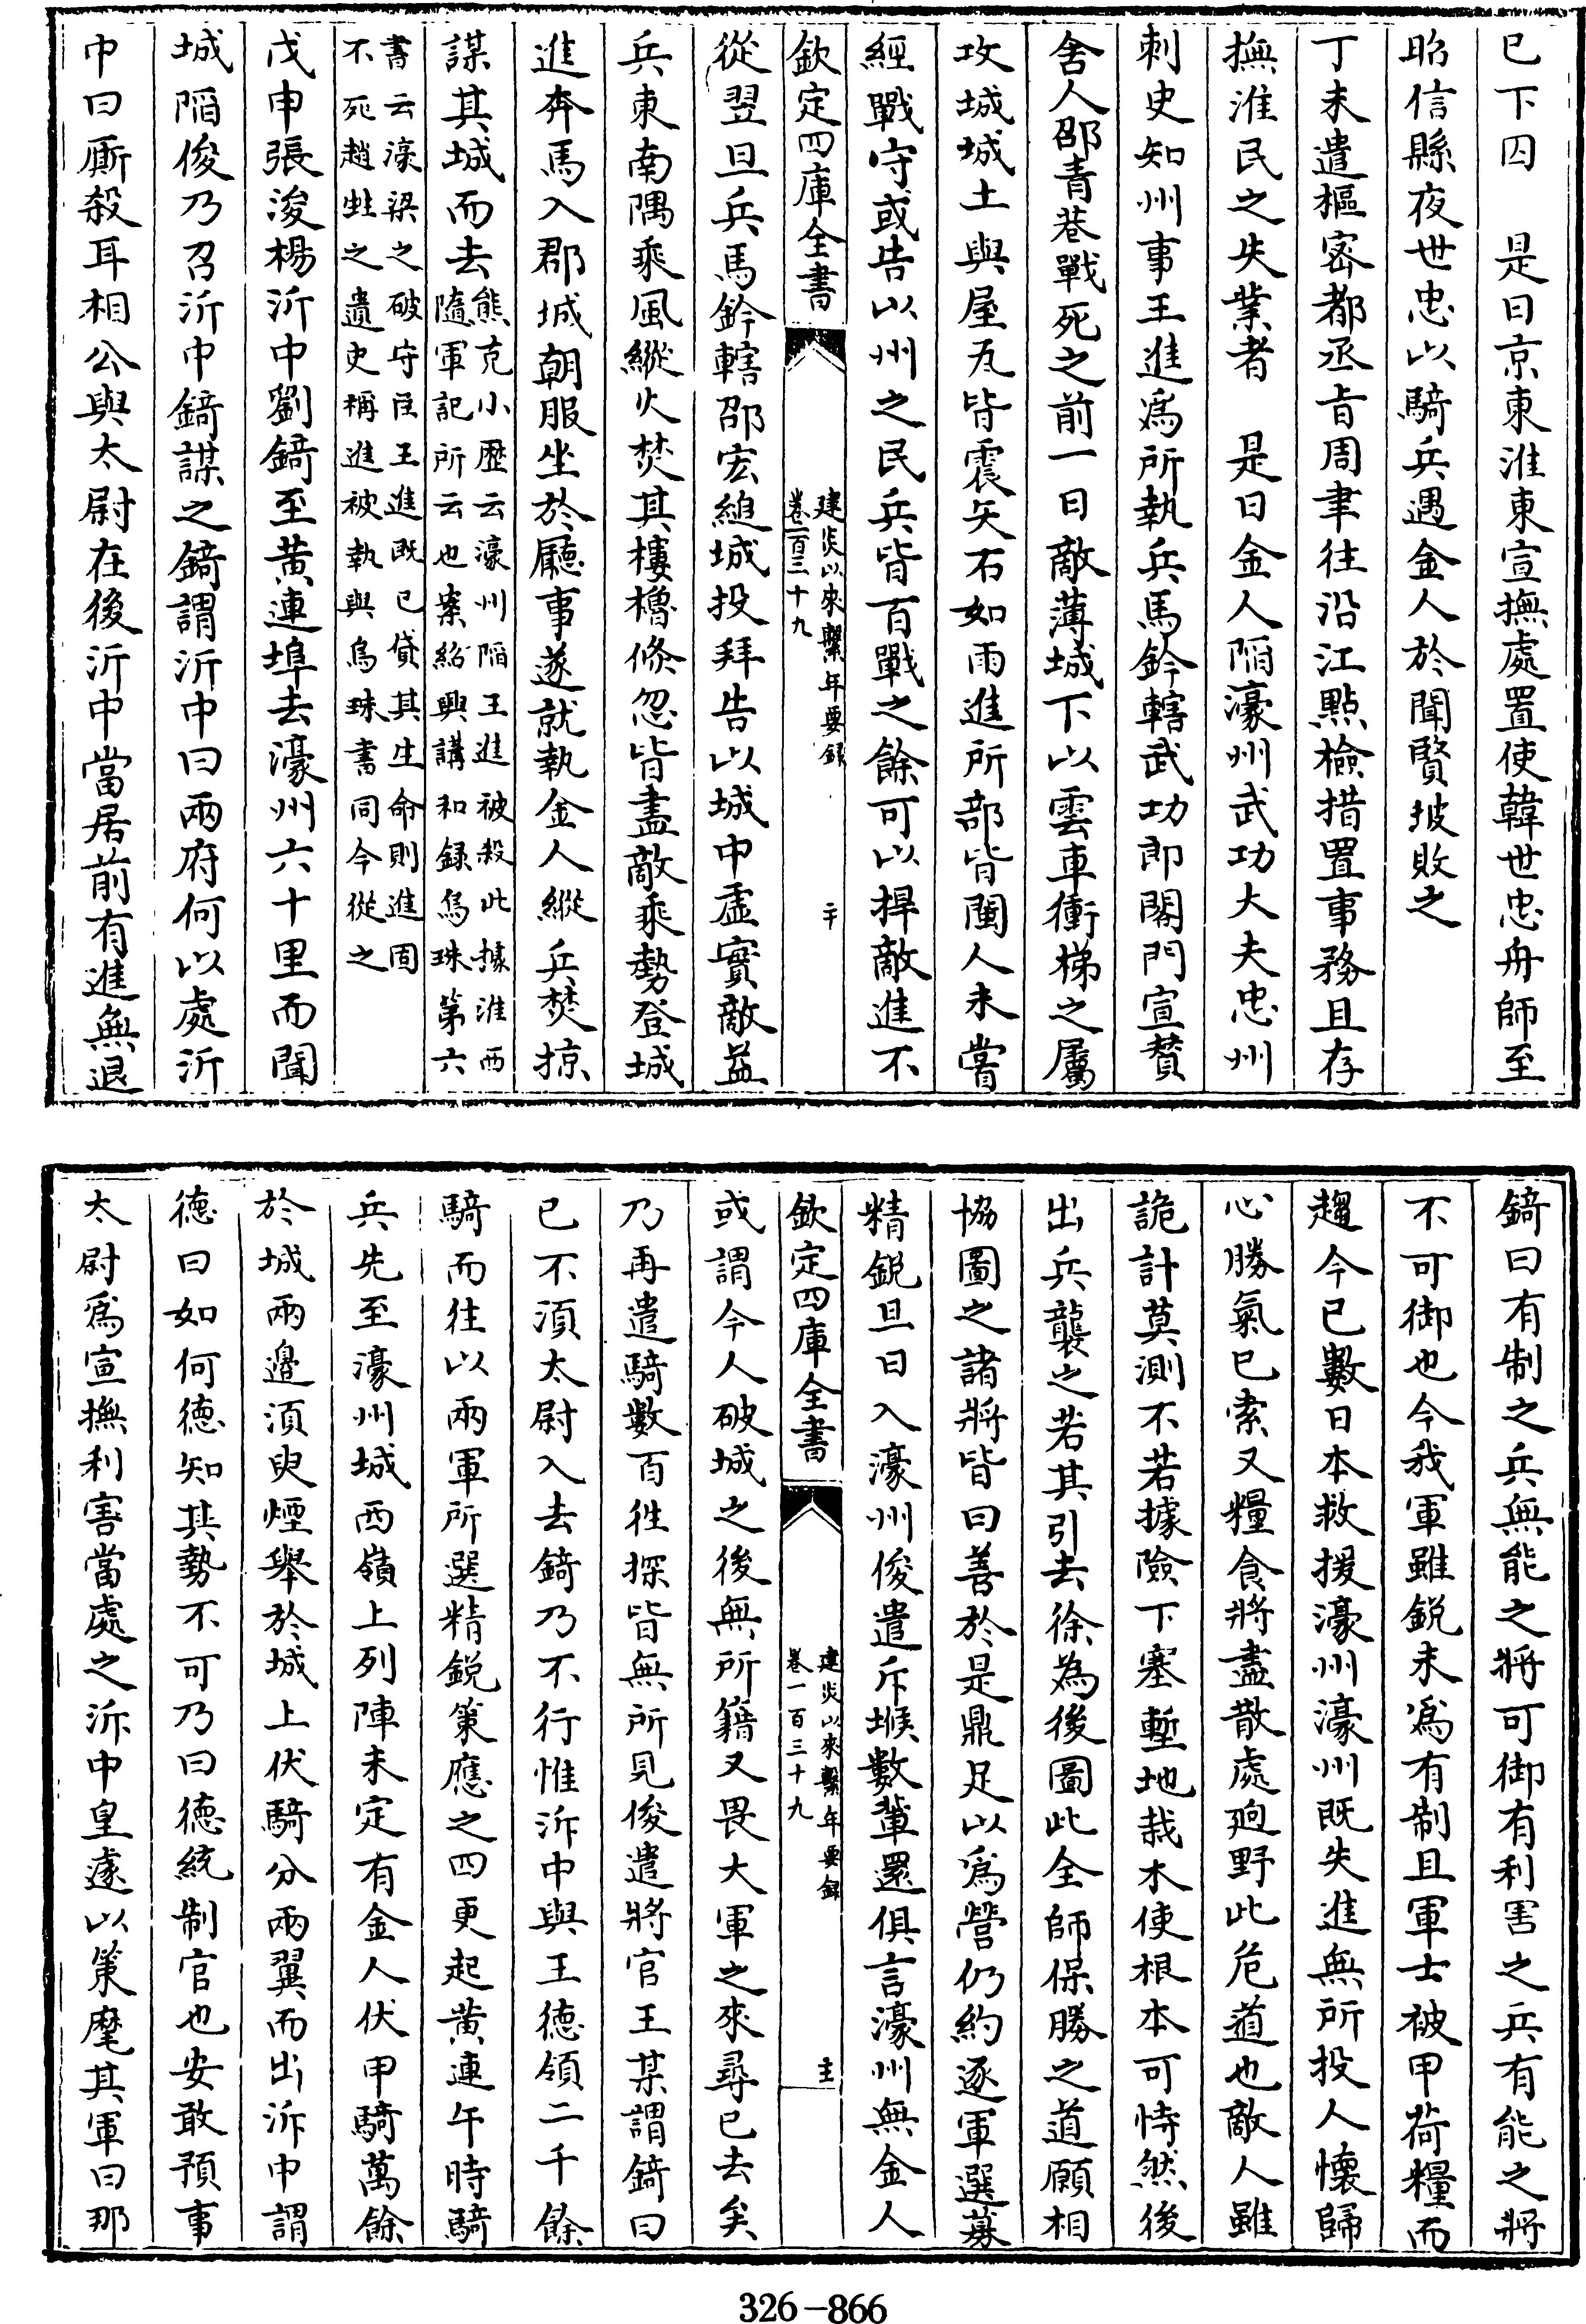 已下四　是日京東淮東宣撫處置使韓世忠舟師至
昭信縣夜世忠以騎兵遇金人於聞賢坡敗之
丁未遣樞密都丞旨周聿往沿江點檢措置事務且存
撫淮民之失業者　是日金人陷濠州武功大夫忠州
刺史知州事王進爲所執兵馬鈐轄武功郎閤門宣贊
舍人邵青巷戰死之前一日敵薄城下以雲車衝梯之屬
攻城城土與屋瓦皆震矢石如雨進所部皆閩人未嘗
經戰守或告以州之民兵皆百戰之餘可以捍敵進不
欽定四庫全書
建炎以來繫年要錄
卷一百三十九
二十
從翌旦兵馬鈐轄邵宏縋城投拜告以城中虛實敵益
兵東南隅乘風縱火焚其樓櫓倏忽皆盡敵乘勢登城
進奔馬入郡城朝服坐於廳事遂就執金人縱兵焚掠
謀其城而去熊克小歷云濠州陷王進被殺此據淮西
隨軍記所云也案紹興講和録烏珠第六
書云濠梁之破守臣王進既已貸其生命則進固
不死趙甡之遺史稱進被執與烏珠書同今從之
戊申張浚楊沂中劉錡至黄連埠去濠州六十里而聞
城陷俊乃召沂中錡謀之錡謂沂中曰兩府何以處沂
中曰厮殺耳相公與太尉在後沂中當居前有進無退
錡曰有制之兵無能之將可御有利害之兵有能之將
不可御也今我軍雖銳未爲有制且軍士被甲荷糧而
趨今已數日本救援濠州濠州既失進無所投人懷歸
心勝氣已索又糧食將盡散處廻野此危道也敵人雖
詭計莫測不若據險下塞塹地栽木使根本可恃然後
出兵襲之若其引去徐為後圖此全師保勝之道願相
協圖之諸將皆曰善於是鼎足以爲營仍約逐軍選募
精鋭旦日入濠州俊遣斥堠數輩還俱言濠州無金人
欽定四庫全書
建炎以來繫年要録
卷一百三十九
主
或謂今人破城之後無所籍又畏大軍之來尋已去矣
乃再遣騎數百往探皆無所見俊遣將官王某謂錡曰
已不湏太尉入去錡乃不行惟沂中與王德領二千餘
騎而往以兩軍所選精鋭策應之四更起黄連午時騎
兵先至濠州城西嶺上列陣未定有金人伏甲騎萬餘
於城兩邊湏臾煙舉於城上伏騎分兩翼而出沂中謂
德曰如何德知其勢不可乃曰德統制官也安敢預事
太尉爲宣撫利害當處之沂中皇遽以策麾其軍曰那
326-866